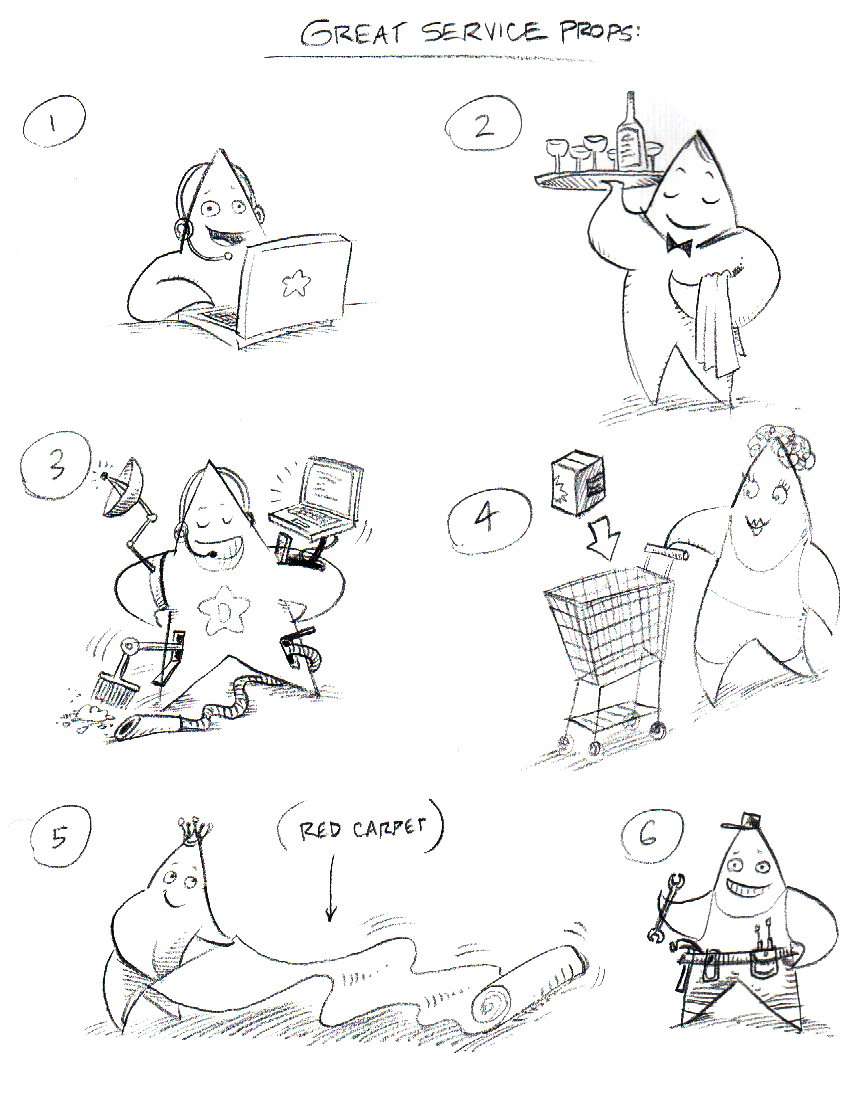 GREAT SERVICE PROPS:
1
2
3
4
5
(RED CARPET)
6